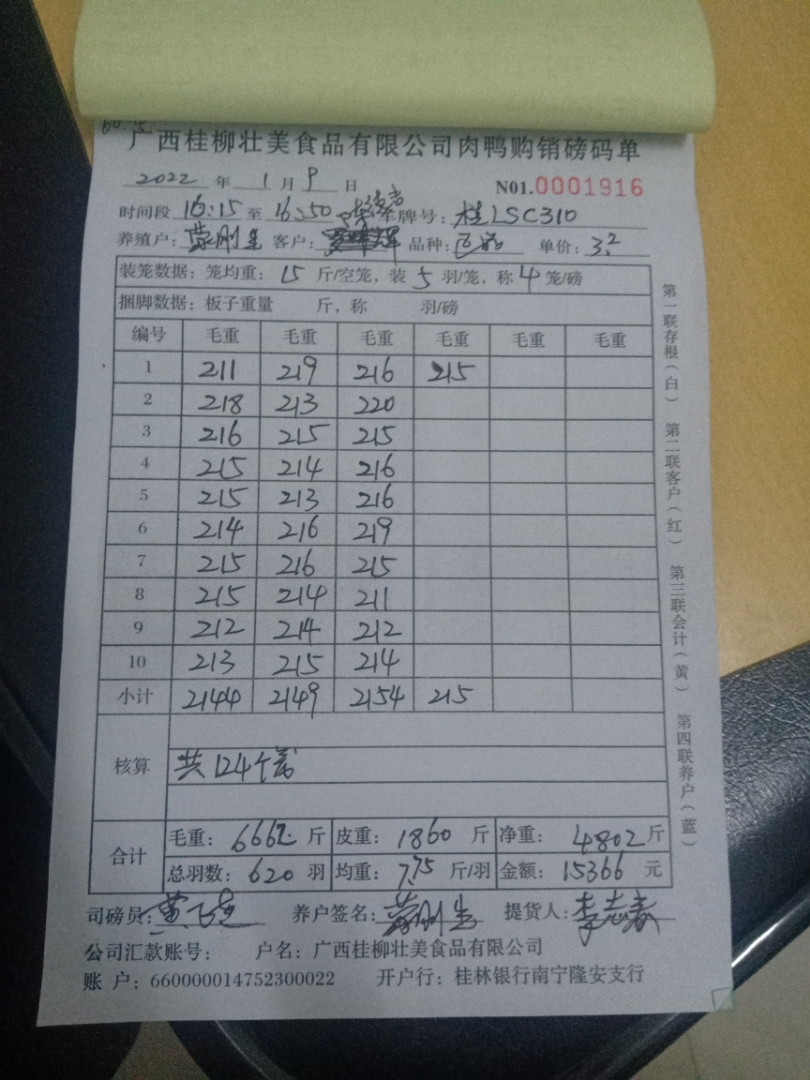 广西桂柳壮美食品有限公司肉鸭购销磅码单
2022 年 1 月 9 日 N01.0001916
时间段 16:15 至 16:50 车牌号: 桂LSC310
养殖户: 刚 客户: 品种: 单价: 3.2
装笼数据: 笼均重: 15 斤/空笼, 装 5 羽/笼, 称 4 笼/磅
捆脚数据: 板子重量 斤, 称 羽/磅
编号 毛重 毛重 毛重 毛重 毛重 毛重
1 211 219 216 215
2 218 213 220
3 216 215 215
4 215 214 216
5 215 213 216
6 214 216 219
7 215 216 215
8 215 214 211
9 212 214 212
10 213 215 214
小计 2144 2149 2154 215
核算 共124个笼
合计 毛重: 6662 斤 皮重: 1860 斤 净重: 4802 斤
总羽数: 620 羽 均重: 7.75 斤/羽 金额: 15366 元
司磅员: 黄 养户签名: 刚 提货人: 李志春
公司汇款账号: 户名: 广西桂柳壮美食品有限公司
账 户: 660000014752300022 开户行: 桂林银行南宁隆安支行
第一联存根(白) 第二联客户(红) 第三联会计(黄) 第四联养户(蓝)